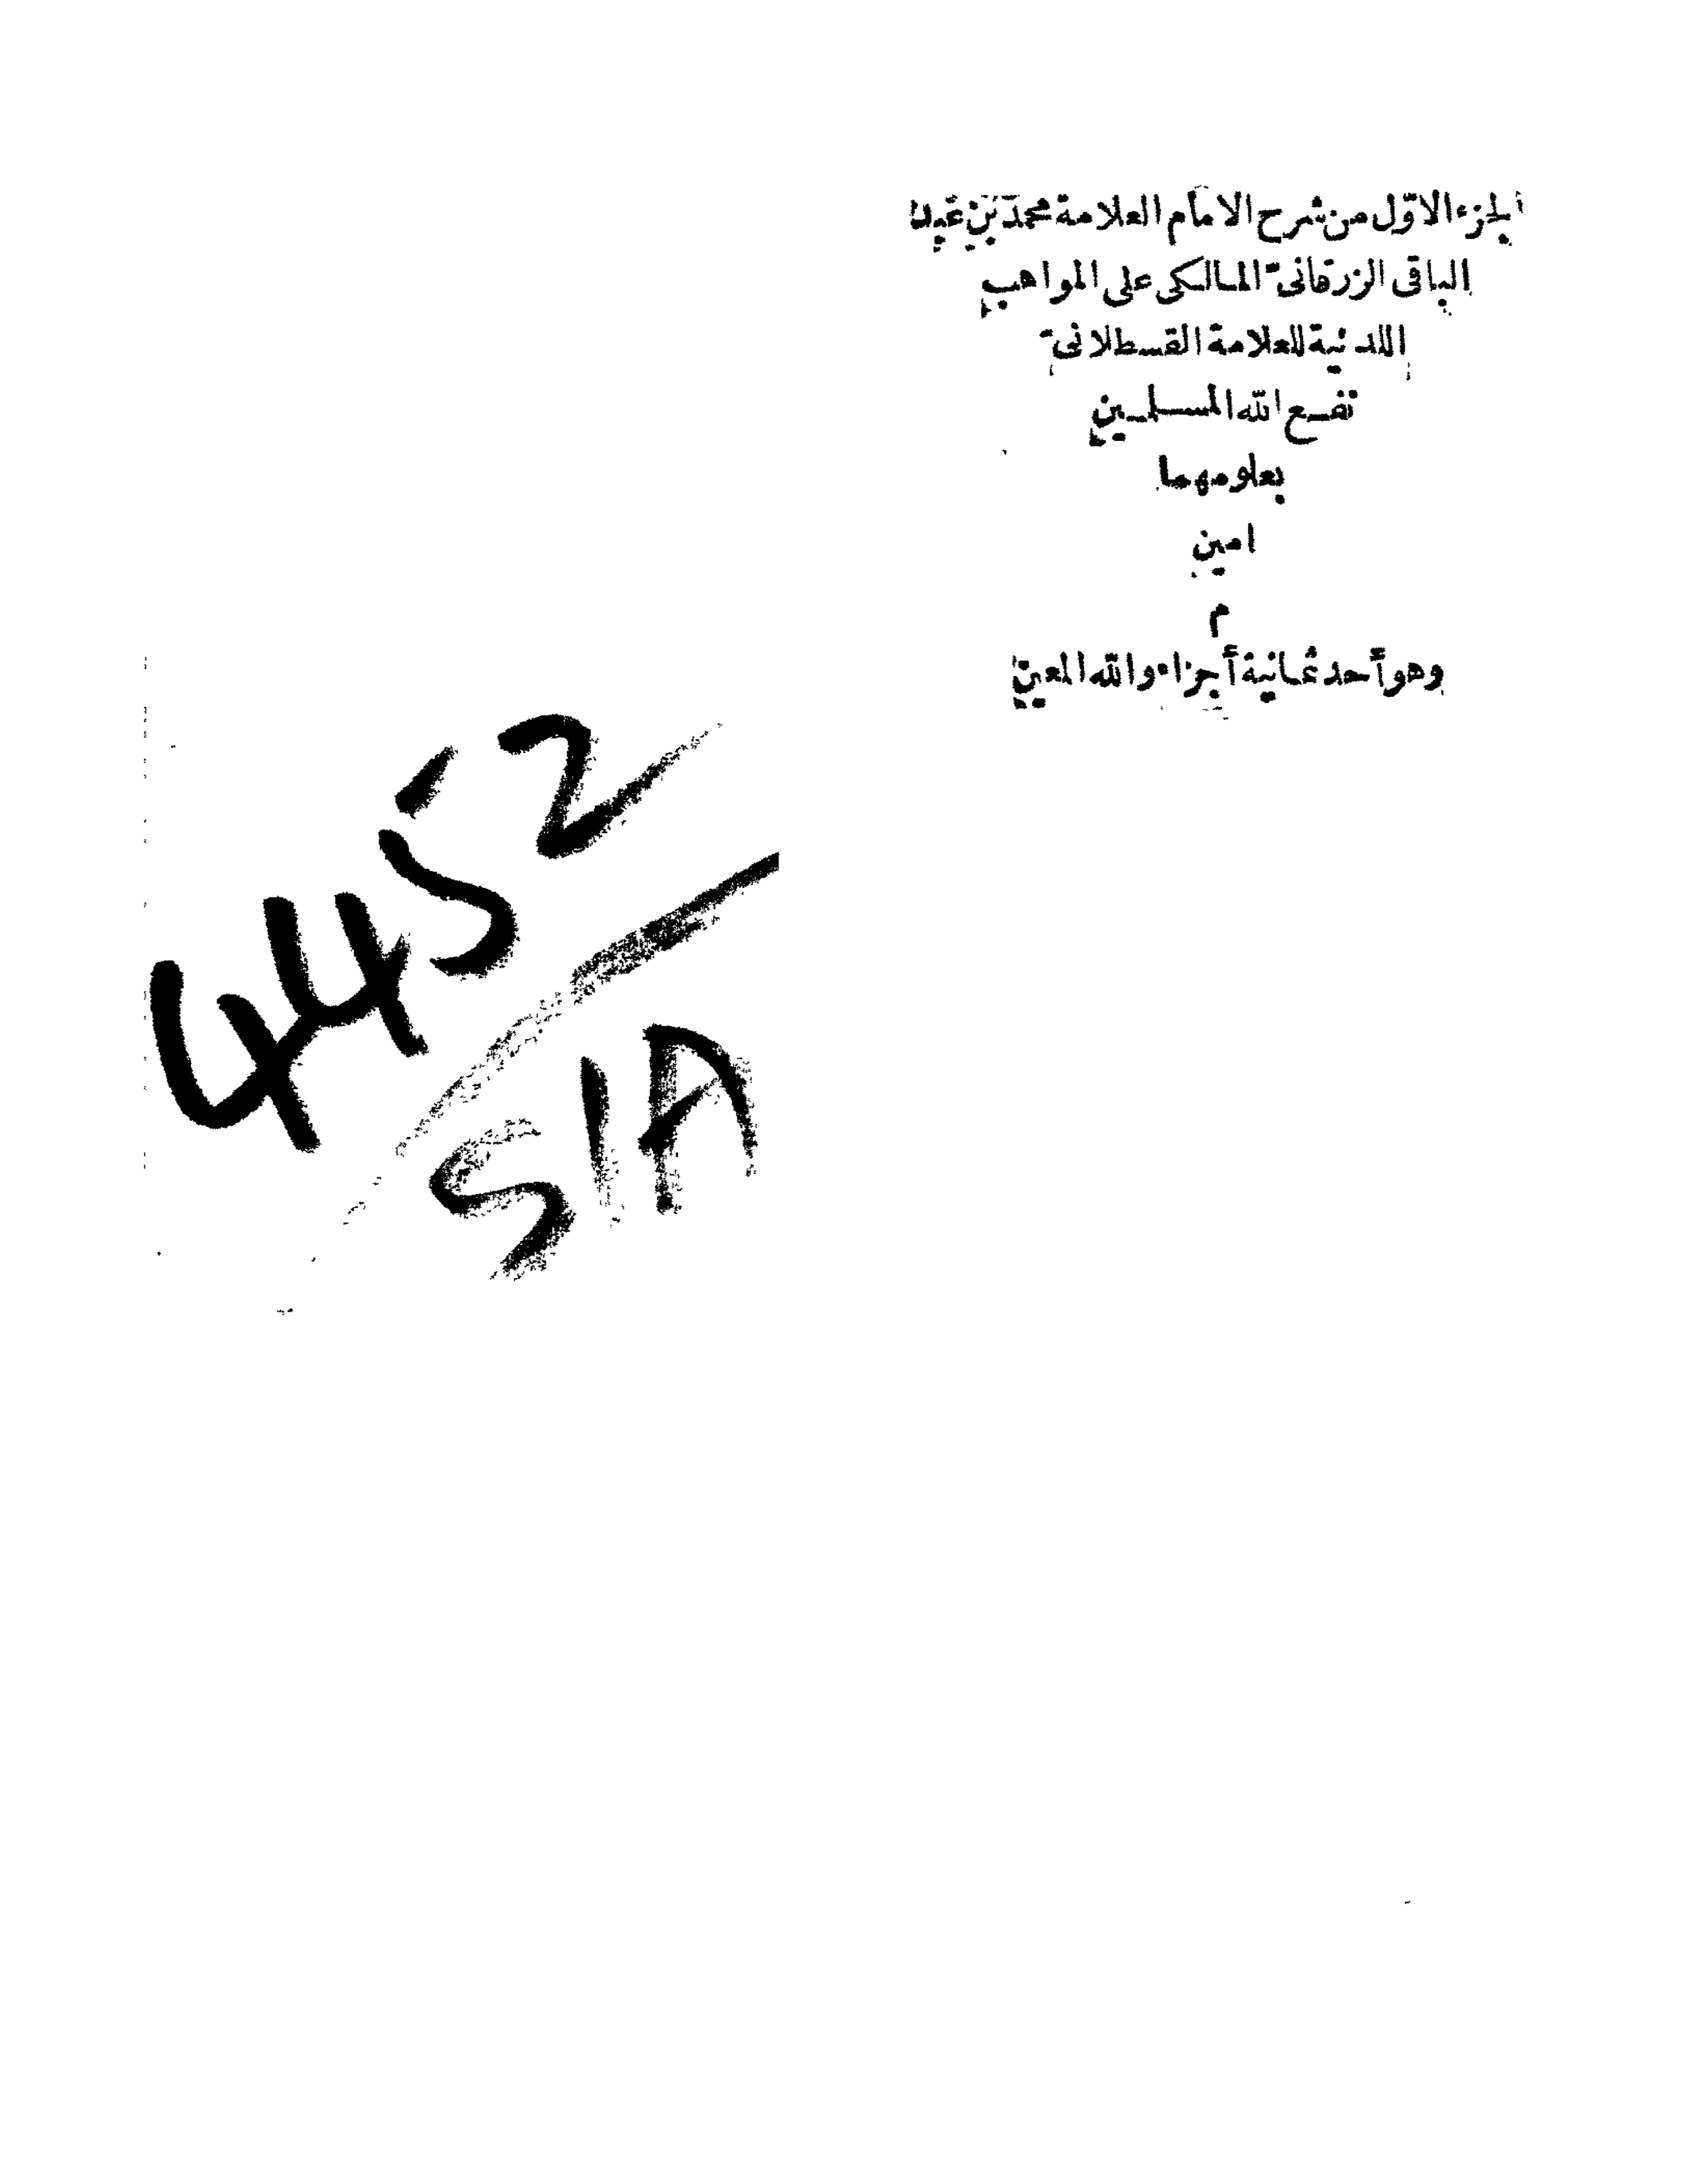 الجزء الاوّل من شرح الامام العلامة محمد بن عبد
الباقى الزرقانىّ المالكى على المواهب
اللدنية للعلامة القسطلانىّ
نفع الله المسلمين
بعلومهما
امين
م
وهو أحد ثمانية أجزاء والله المعين
4452
SIA